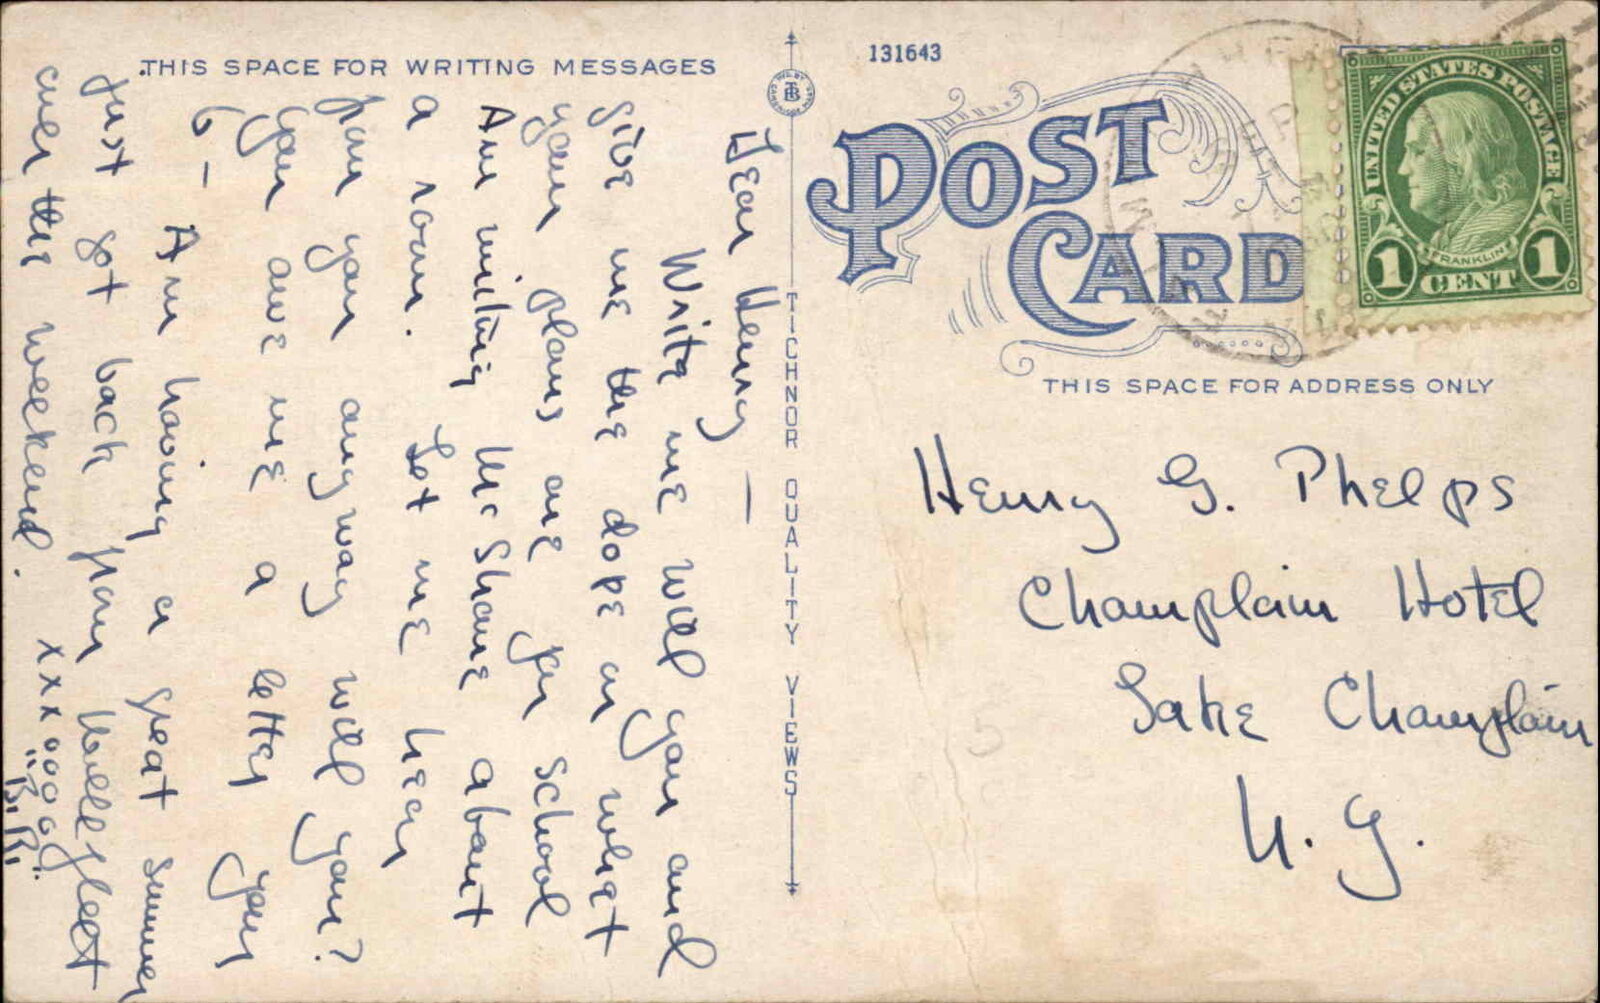 THIS SPACE FOR WRITING MESSAGES
Dear Henry —
Write me will you and
give me the dope on what
your plans are for school
Am writing McShane about
a room. Let me hear
from you anyway will you?
You owe me a letter you
6 — Am having a great summer
Just got back from Wellfleet
over the weekend. xxxoooooo!
"B.R."
TICHNOR QUALITY VIEWS
131643
POST
CARD
UNITED STATES POSTAGE
FRANKLIN
1 CENT 1
THIS SPACE FOR ADDRESS ONLY
Henry G. Phelps
Champlain Hotel
Lake Champlain
N.Y.